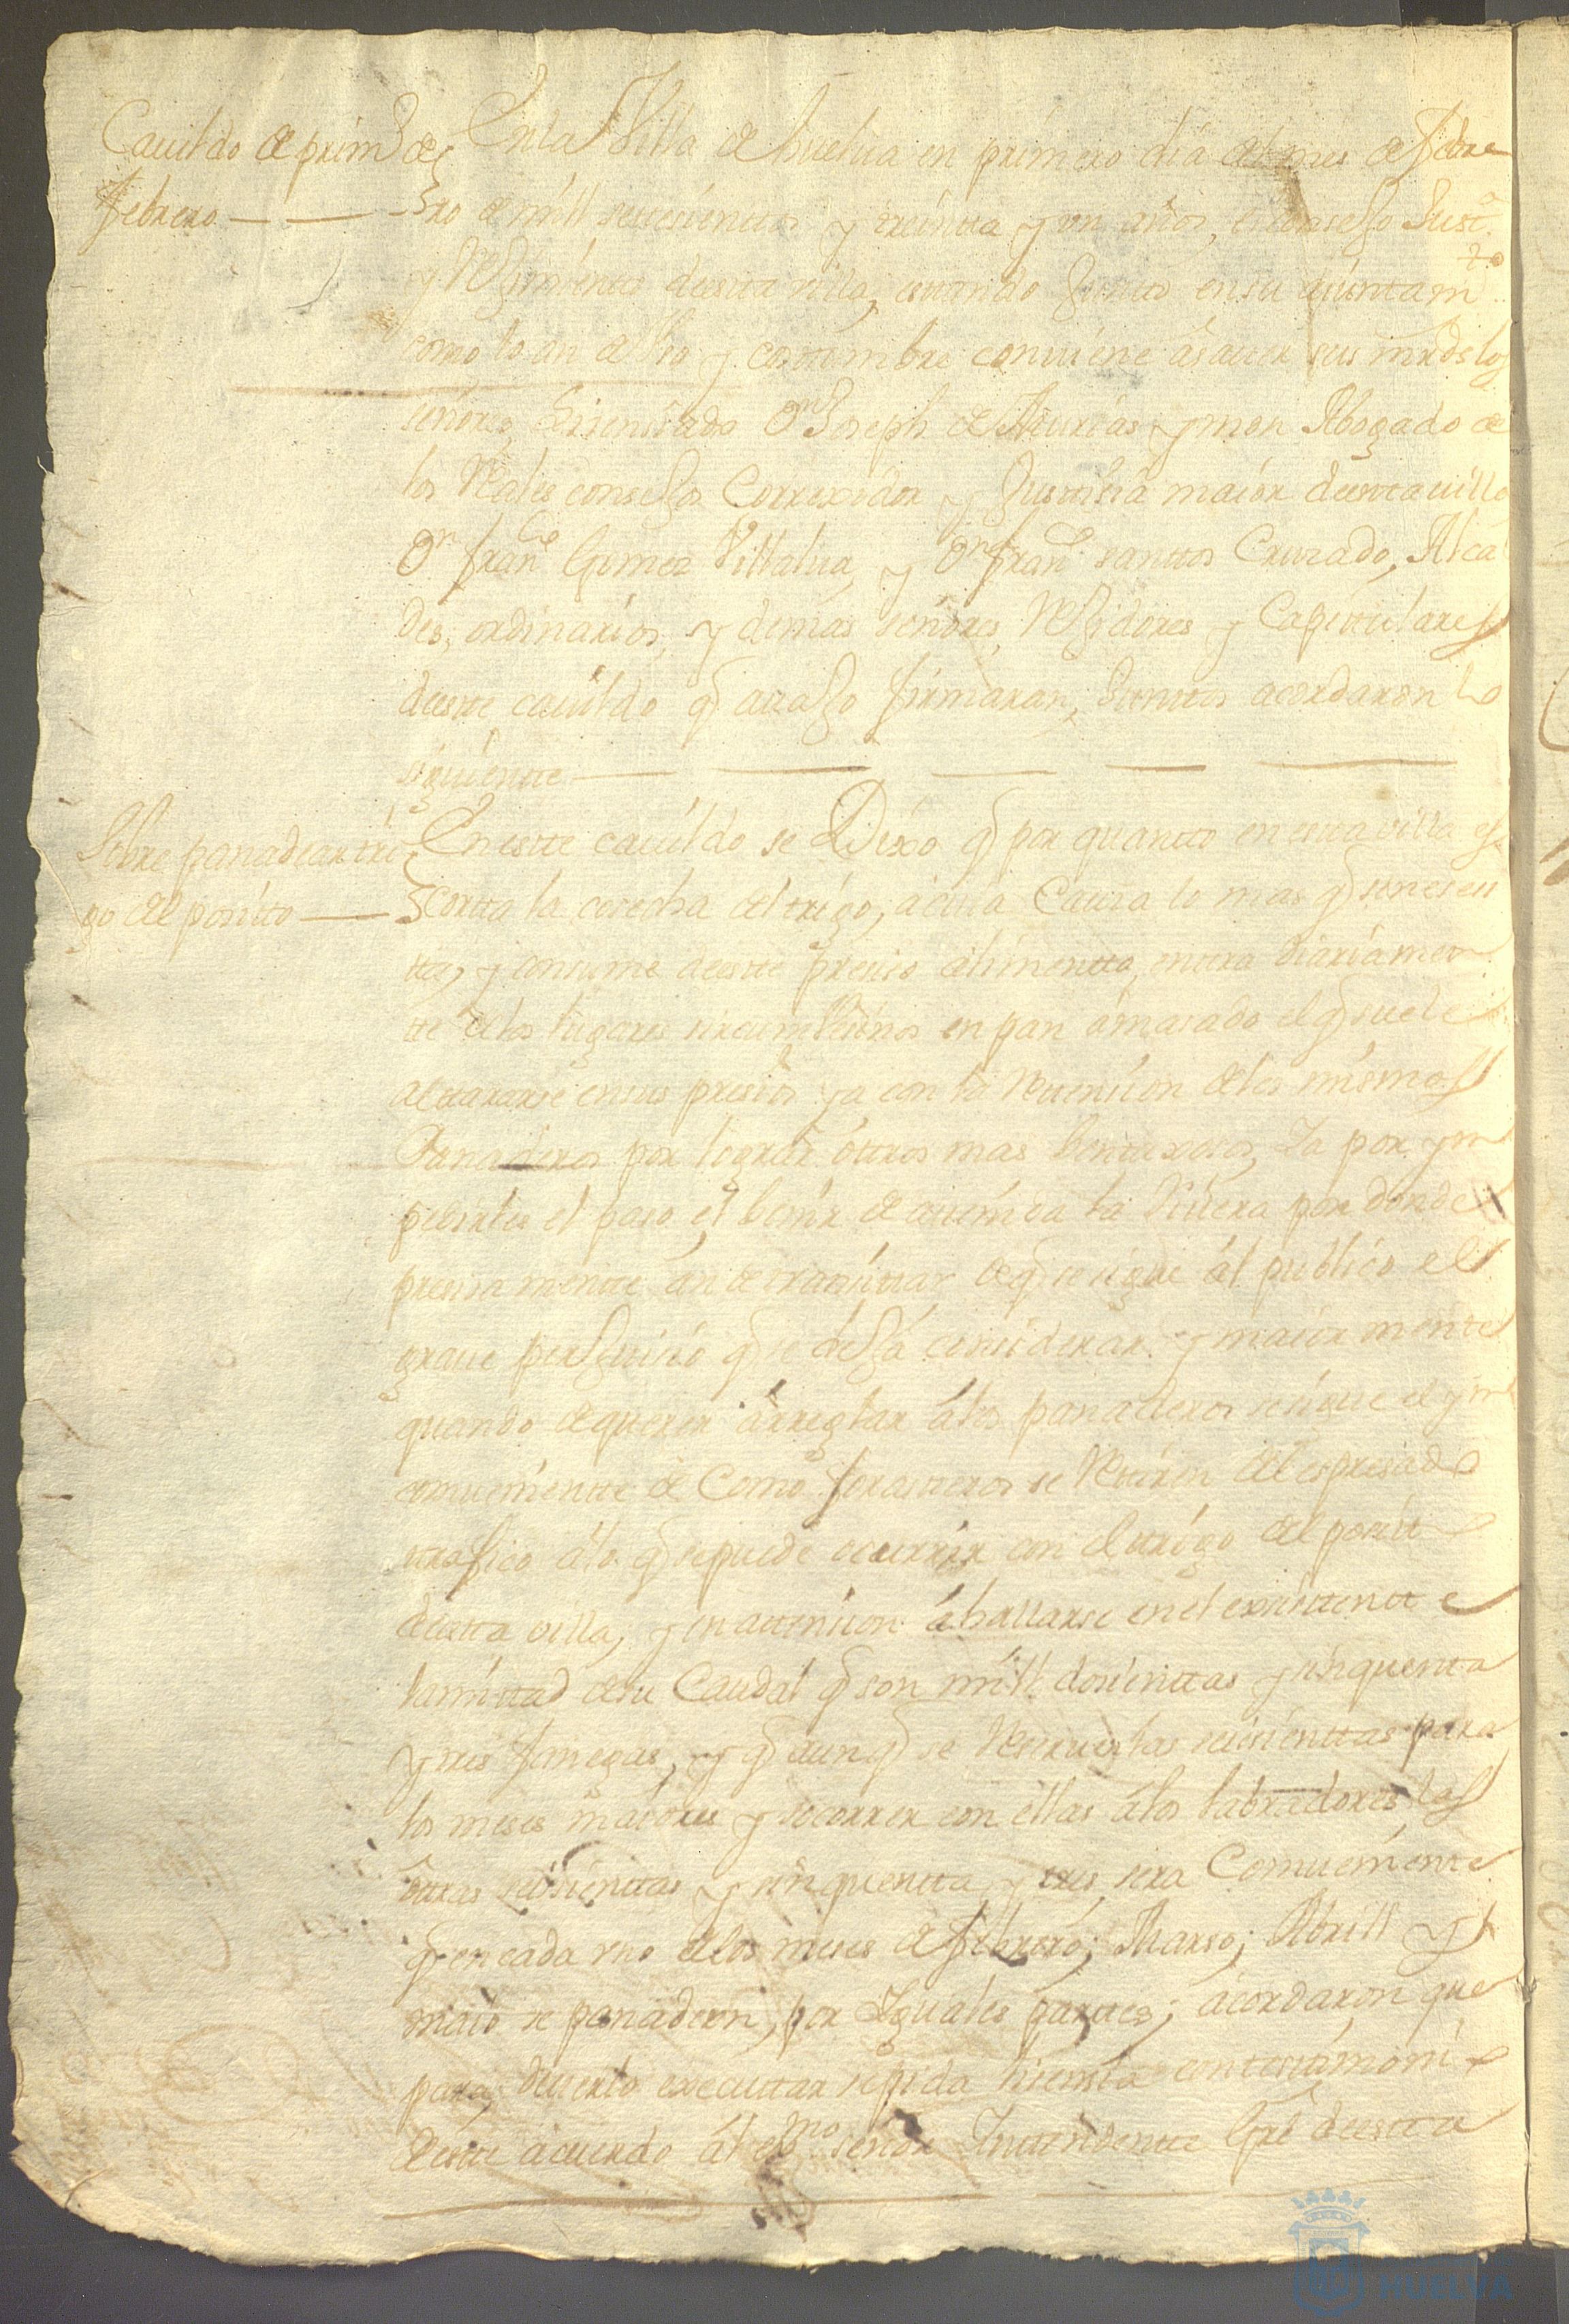 Cauildo de prim.º de
febrero
En la Villa de huelua en primero dia del mes de febre
ro de mill settesienttos y treintta y vn años, el consejo Justª
y Reximientto de estta villa, esttando Juntto en su aiuntamtº
como lo an de Vso y costtumbre conuiene ásauer sus mrds los
señores Lisensiado Dn Joseph de Asturias ymon Abogado de
los Reales consejos Correxidor y Justtisia maior de estta uilla
Dn franco Gomez Villalua, y Dn franco santtos Cruzado, Alcal
des, ordinarios, y demas señores, Rexidores y Capittulares
de estte cauildo q auajo firmaran, Junttos acordaron lo
siguientte
Sobre panadear tri
go del positto
En estte cauildo se Dixo q por quantto en estta villa es
cortta la cosecha del trigo, á cuia Causa lo mas q se nesesi
tta, y consume de estte presiso alimentto, enttra diariamen
tte de los lugares sircumVesinos en pan ámasado el q suele
altterarse en sus presios ya con la Rettension de los mismos
Panaderos por lograr óttros mas benttaxosos, Ya por ym
pedirles el paso el benir de auenida la Riuera por donde
presisamentte án de transittar de q se sigue ál publico el
graue perjuisio q se deja considerar y maiormentte
quando de querer árreglar á los panaderos se sigue el yn
comuenientte de Como forastteros se Rettiren del espresado
ttrafico á lo q se puede ocurrir con el ttrigo del positto
de estta villa, y en attension á hallarse en el existtentte
la mittad de su Caudal q son mill dosienttas y sinquentta
y tres fanegas, y q aunq se Reseruen las seisienttas para
los meses maiores y socorrer con ellas á los labradores, las
óttras seissienttas y sinquentta y tres, sera Comuenientte
q en cada vno de los meses de febrero; Marso; Abrill y
maio se panadeen, por Yguales parttes; ácordaron que
para poderlo executtar se pida lisensia con testtimonio
de estte acuerdo ál exmo señor Inttendentte Gral de estta
HUELVA